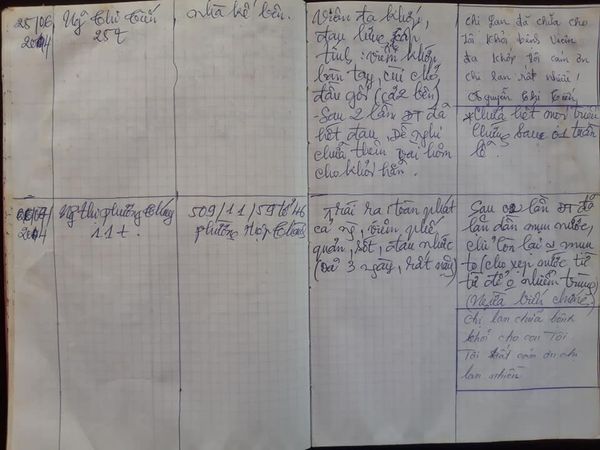 25/06
2004
Ng~ Thị Tuấn
25t
nhà kế bên.
Viêm đa khớp,
đau lưng cấp
tính: viêm khớp
bàn tay, cùi chỏ
đầu gối (cả 2 bên)
- Sau 2 lần ĐT đã
hết đau, đề nghị
chữa thêm vài hôm
cho khỏi hẳn.
chị Lan đã chữa cho
tôi khỏi bệnh viêm
đa khớp tôi cám ơn
chị lan rất nhiều!
Nguyễn thị
* Chữa hết mọi triệu
chứng sau 01 tuần
lễ.
2004
Ng thị phương
11t.
509/11/59 tổ 46
phường
Trái rạ toàn phát
cả họ, viêm phế
quản, sốt, đau nhức
3 ngày, rất
Sau 02 lần ĐT đã
lặn dần mụn nước,
chỉ còn lại 2 mụn
to (cho xẹp nước từ
từ để ko nhiễm trùng)
(Ngừa biến chứng)
chị lan chữa bệnh
khỏi cho con Tôi
Tôi rất cảm ơn chị
lan nhiều